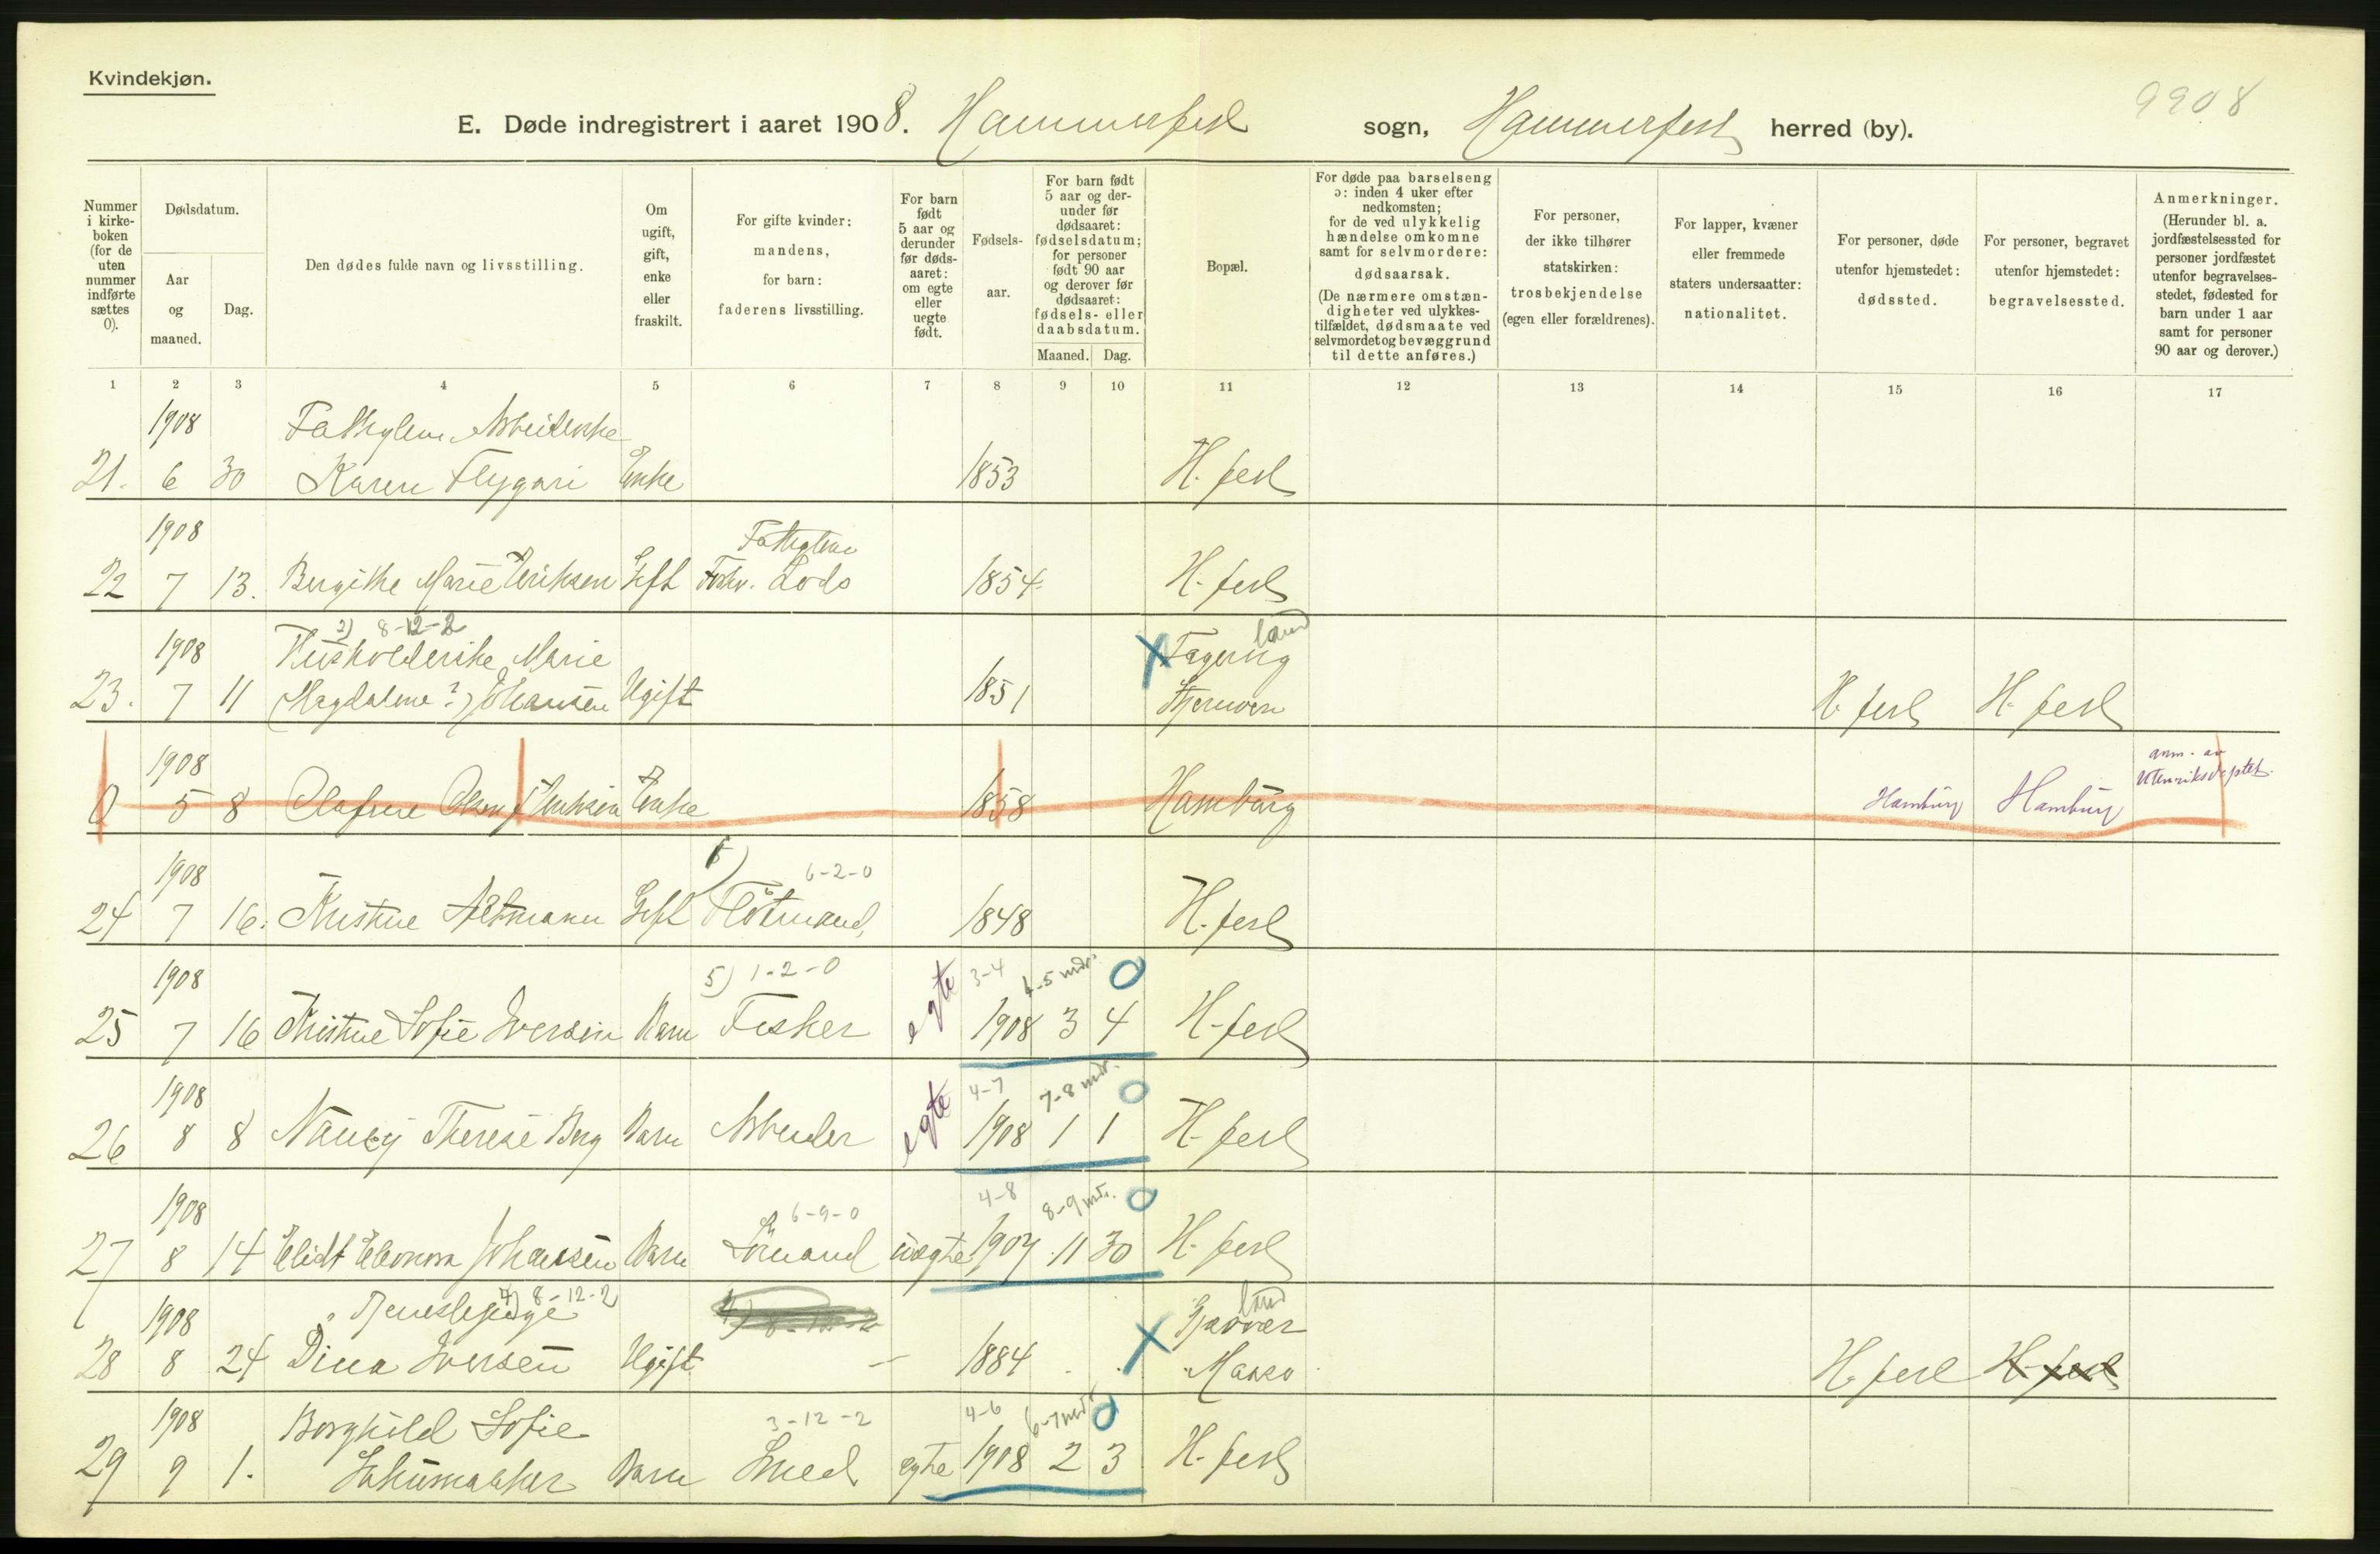 Kvindekjøn.
9908
E. Døde indregistrert i aaret 1908. Hammerfest sogn, Hammerfest herred (by).
Nummer i kirke-boken (for de uten nummer indførte sættes 0).
Dødsdatum.
Aar og maaned.
Dag.
Den dødes fulde navn og livsstilling.
Om ugift, gift, enke eller fraskilt.
For gifte kvinder: mandens, for barn: faderens livsstilling.
For barn født 5 aar og derunder før døds-aaret: om egte eller uegte født.
Fødsels-aar.
For barn født 5 aar og der-under før dødsaaret: fødselsdatum; for personer født 90 aar og derover før dødsaaret: fødsels- eller daabsdatum.
Maaned. Dag.
Bopæl.
For døde paa barselseng ɔ: inden 4 uker efter nedkomsten; for de ved ulykkelig hændelse omkomne samt for selvmordere: dødsaarsak. (De nærmere omstæn-digheter ved ulykkes-tilfældet, dødsmaate ved selvmordet og bevæggrund til dette anføres.)
For personer, der ikke tilhører statskirken: trosbekjendelse (egen eller forældrenes).
For lapper, kvæner eller fremmede staters undersaatter: nationalitet.
For personer, døde utenfor hjemstedet: dødssted.
For personer, begravet utenfor hjemstedet: begravelsessted.
Anmerkninger. (Herunder bl. a. jordfæstelsessted for personer jordfæstet utenfor begravelses-stedet, fødested for barn under 1 aar samt for personer 90 aar og derover.)
1 2 3 4 5 6 7 8 9 10 11 12 13 14 15 16 17
1908 Fattiglem
21. 6 30 Karen Flygari Enke 1853 H. fest
1908 Fattiglem
22 7 13. Bergithe Marie Eriksen Gift Forhv. Lods 1854 H. fest
2) 8-12-2 land
1908 Husholderske Marie Fagervig
23. 7 11 (Magdalene?) Johansen Ugift 1851 Stjernøen H. fest H. fest
1908 anm. av Utenriksdeptet.
0 5 8 Olafine Olsen f. Eriksen Enke 1858 Hamburg Hamburg Hamburg
1908 6-2-0
24 7 16. Kristine Altmann Gift Flötmand 1848 H. fest
1908 5) 1-2-0 3-4 4-5 mdr. 0
25 7 16 Kristine Sofie Iversen Barn Fisker egte 1908 3 4 H. fest
1908 4-7 7-8 mdr. 0
26 8 8 Nancy Therese Berg Barn Arbeider egte 1908 1 1 H. fest
1908 6-9-0 4-8 8-9 mdr. 0
27 8 14 Elida Eleonora Johansen Barn Sømand uegte 1907 11 30 H. fest
4) 8-12-2 land
1908 Tjenestepige Gjesvær
28 8 24 Dina Iversen Ugift — 1884 Maasø H. fest H. fest
1908 Borghild Sofie 3-12-2 4-6 6-7 mdr. 0
29 9 1. Schumakker Barn Smed egte 1908 2 3 H. fest